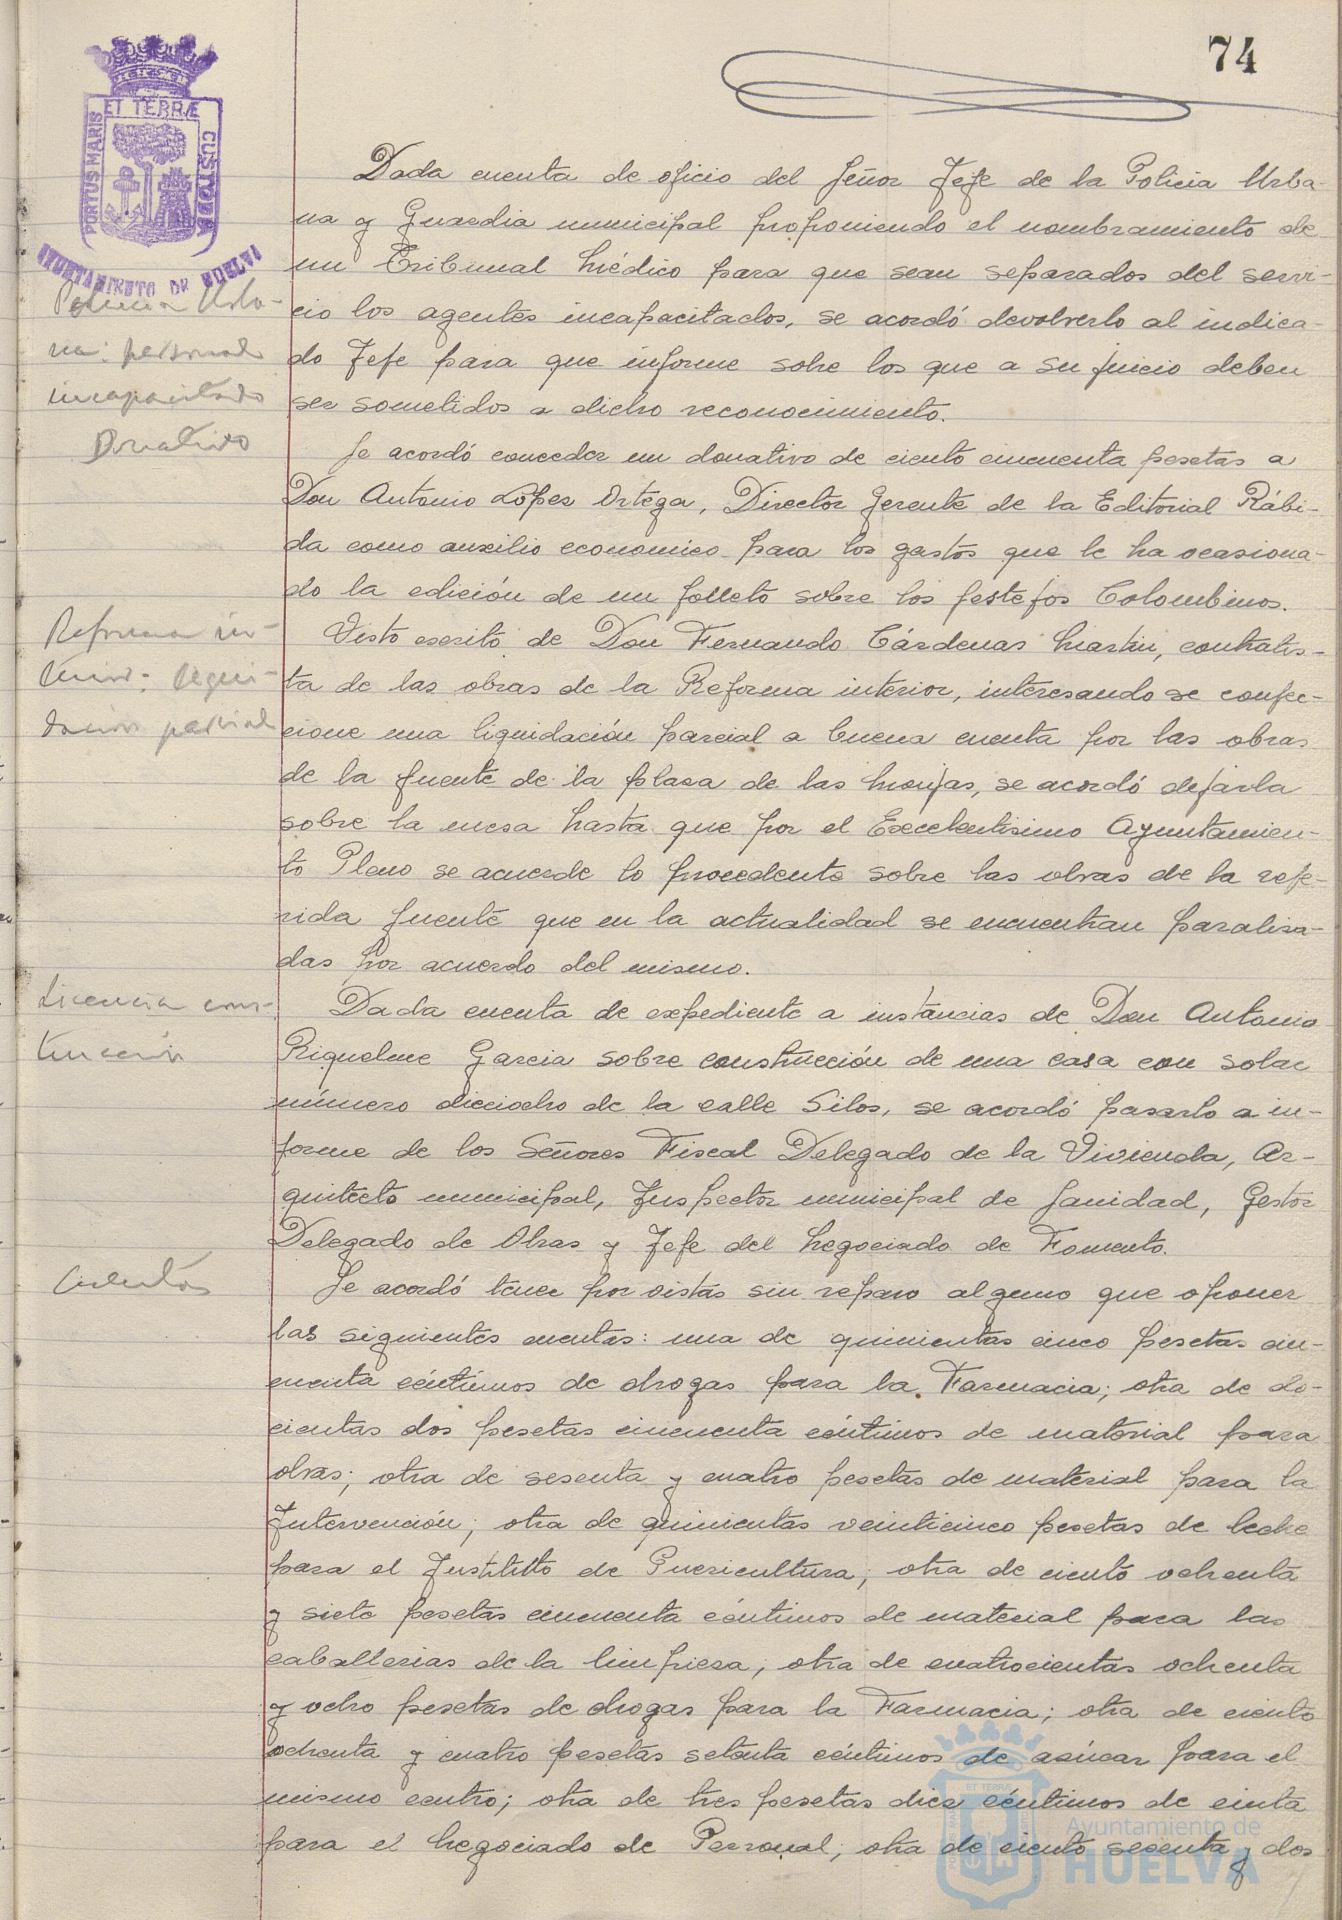 74
ET TERRÆ
PORTUS MARIS
CUSTODIA
AYUNTAMIENTO DE HUELVA
Dada cuenta de oficio del Señor Jefe de la Policia Urba-
na y Guardia municipal proponiendo el nombramiento de
un Tribunal Médico para que sean separados del servi-
cio los agentes incapacitados, se acordó devolverlo al indica-
do Jefe para que informe sobre los que a su juicio deben
ser sometidos a dicho reconocimiento.
Policia Urba-
na: personal
incapacitado
Donativo
Se acordó conceder un donativo de ciento cincuenta pesetas a
Don Antonio López Ortega, Director Gerente de la Editorial Rábi-
da como auxilio economico para los gastos que le ha ocasiona-
do la edición de un folleto sobre los festejos Colombinos.
Reforma in-
terior: liqui-
dación parcial
Visto escrito de Don Fernando Cárdenas Martin, contratis-
ta de las obras de la Reforma interior, interesando se confec-
cione una liquidación parcial a buena cuenta por las obras
de la fuente de la plaza de las Monjas, se acordó dejarla
sobre la mesa hasta que por el Excelentisimo Ayuntamien-
to Pleno se acuerde lo procedente sobre las obras de la refe-
rida fuente que en la actualidad se encuentran paraliza-
das por acuerdo del mismo.
Licencia cons-
trucción
Dada cuenta de expediente a instancias de Don Antonio
Riquelme Garcia sobre construcción de una casa con solar
número dieciocho de la calle Silos, se acordó pasarlo a in-
forme de los Señores Fiscal Delegado de la Vivienda, Ar-
quitecto municipal, Inspector municipal de Sanidad, Gestor
Delegado de Obras y Jefe del Negociado de Fomento.
Cuentas
Se acordó tener por vistas sin reparo alguno que oponer
las siguientes cuentas: una de quinientas cinco pesetas cin-
cuenta céntimos de drogas para la Farmacia; otra de do-
cientas dos pesetas cincuenta céntimos de material para
obras; otra de sesenta y cuatro pesetas de material para la
Intervención; otra de quinientas veinticinco pesetas de leche
para el Institutto de Puericultura; otra de ciento ochenta
y siete pesetas cincuenta céntimos de material para las
caballerias de la limpieza; otra de cuatrocientas ochenta
y ocho pesetas de drogas para la Farmacia; otra de ciento
ochenta y cuatro pesetas setenta céntimos de azúcar para el
mismo centro; otra de tres pesetas diez céntimos de cinta
para el Negociado de Personal; otra de ciento sesenta y dos
ET TERRÆ
Ayuntamiento de
HUELVA